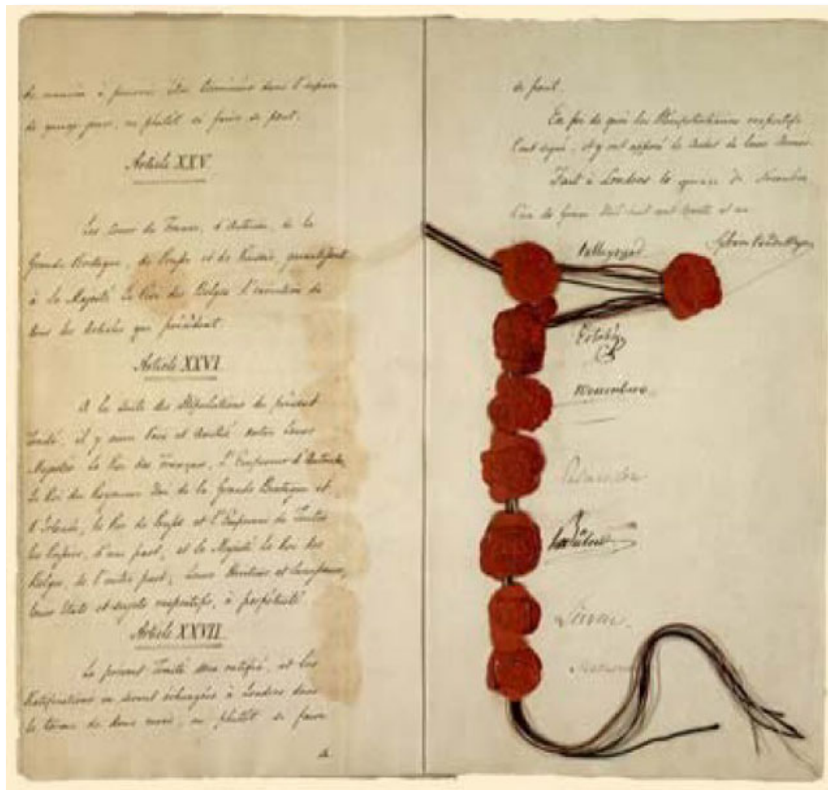 de manière à pouvoir être terminées dans l'espace
de quinze jours, ou plutôt si faire se peut.
Article XXV
Les Cours de France, d'Autriche, de la
Grande Bretagne, de Prusse et de Russie, garantissent
à Sa Majesté le Roi des Belges l'exécution de
tous les Articles qui précèdent.
Article XXVI
A la suite des Stipulations du présent
Traité, il y aura Paix et Amitié entre Leurs
Majestés le Roi des Français, l'Empereur d'Autriche,
le Roi du Royaume Uni de la Grande Bretagne et
d'Irlande, le Roi de Prusse et l'Empereur de Toutes
les Russies, d'une part, et Sa Majesté le Roi des
Belges, de l'autre part, Leurs Héritiers et Successeurs,
leurs Etats et sujets respectifs, à perpétuité
Article XXVII
Le présent Traité sera ratifié, et les
Ratifications en seront échangées à Londres dans
le terme de deux mois, ou plutôt si faire
se
se peut.
En foi de quoi les Plénipotentiaires respectifs
l'ont signé, et y ont apposé le cachet de leurs Armes.
Fait à Londres le quinze de Novembre
l'an de Grace Mil huit cent trente et un
Sylvain Van de Weyer
Talleyrand
Esterházy
Wessenberg
Palmerston
Lieven